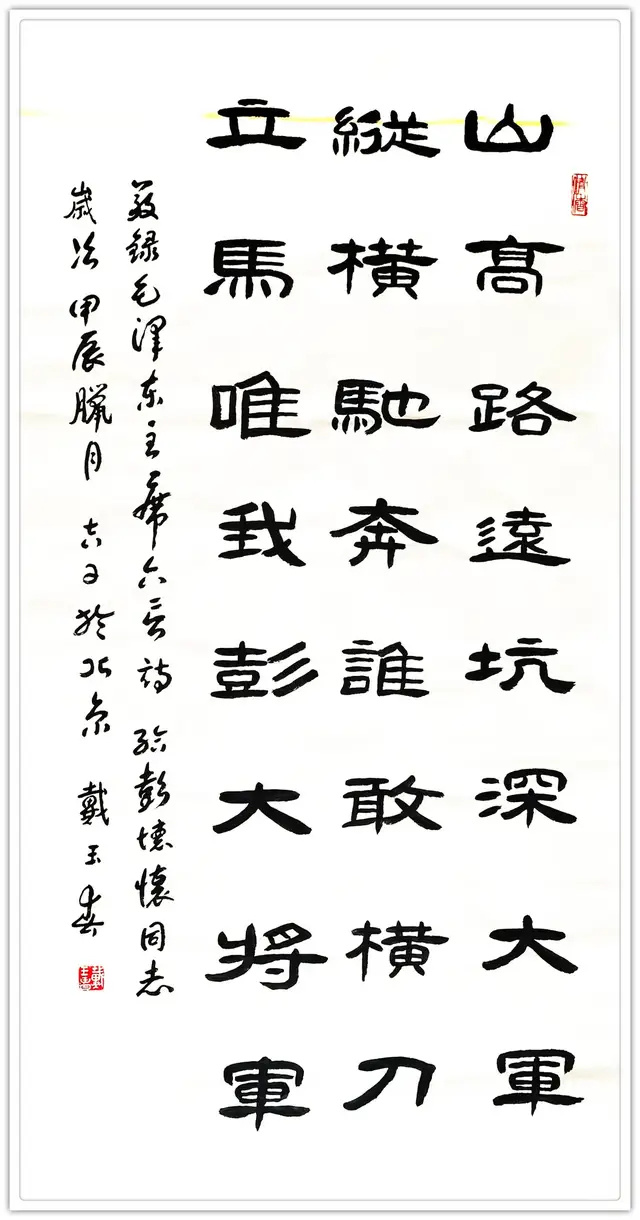 山高路遠坑深大軍
縱橫馳奔誰敢橫刀
立馬唯我彭大将軍
敬録毛澤东主席六言詩 給彭德懷同志
歲次甲辰臘月 吉日於北京 戴玉春